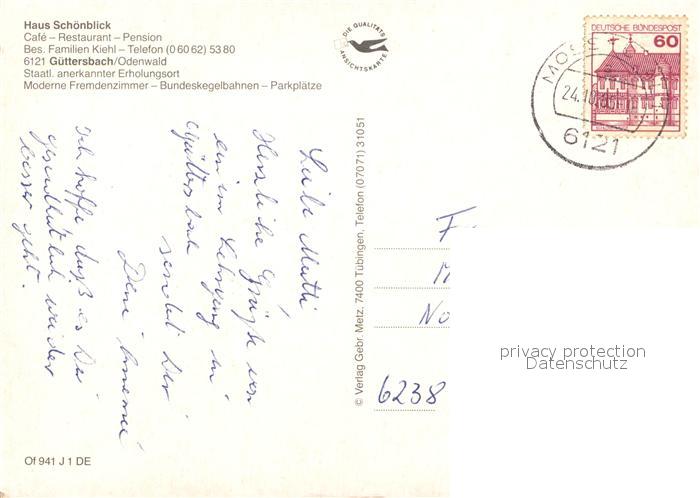 Haus Schönblick
Café – Restaurant – Pension
Bes. Familien Kiehl – Telefon (0 60 62) 53 80
6121 Güttersbach/Odenwald
Staatl. anerkannter Erholungsort
Moderne Fremdenzimmer – Bundeskegelbahnen – Parkplätze
DIE QUALITÄTS
ANSICHTSKARTE
DEUTSCHE BUNDESPOST
60
MOSS
24.10.
6121
Liebe Mutti
Herzliche Grüße von
einem Lehrgang in
Güttersbach
sendet Dir
Dein
Ich hoffe daß es Dir
gesundheitlich wieder
besser geht.
© Verlag Gebr. Metz, 7400 Tübingen, Telefon (07071) 31051
F
No
6238
privacy protection
Datenschutz
Of 941 J 1 DE